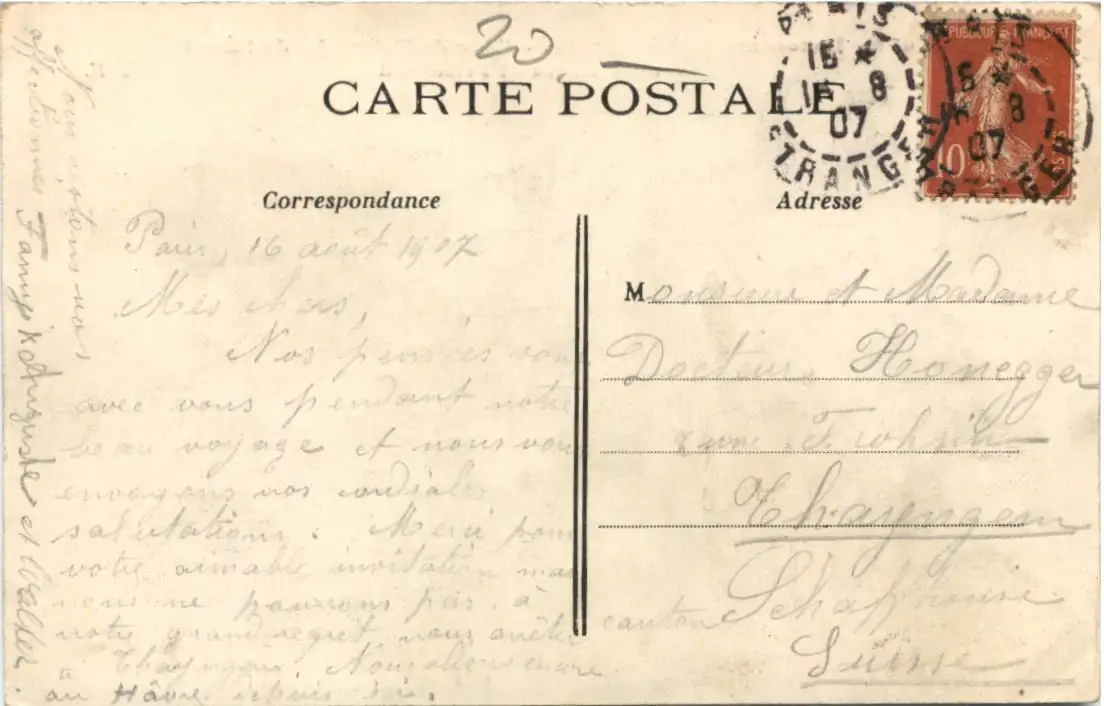 20
CARTE POSTALE
PARIS
16 *
16 8
07
ETRANGER
REPUBLIQUE FRANÇAISE
10
Correspondance
Adresse
Paris, 16 août 1907
Mes chers,
Nos pensées vont
avec vous pendant notre
beau voyage et nous vous
envoyons nos cordiales
salutations. Merci pour
votre aimable invitation mais
nous ne pouvons pas, à
notre grand regret, nous arrêter
Nous allons encore
au Hâvre depuis ici.
Nous restons vos
affectionnés Fanny & Auguste et Walder.
Monsieur et Madame
Docteur Honegger
zum
Thayngen
canton Schaffhouse
Suisse